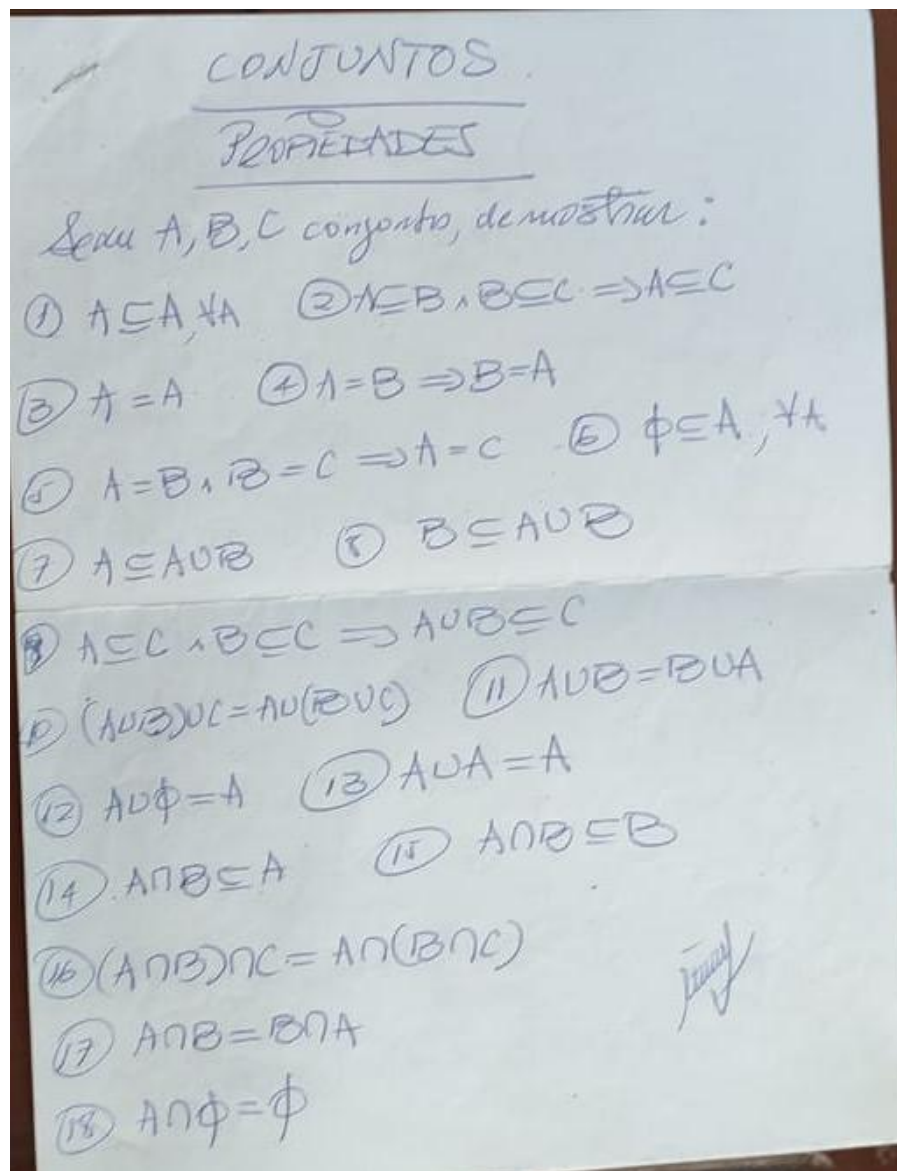 CONJUNTOS
PROPIEDADES
Sean A, B, C conjuntos, demostrar:
① A ⊆ A, ∀A ② A ⊆ B ∧ B ⊆ C ⇒ A ⊆ C
③ A = A ④ A = B ⇒ B = A
⑤ A = B ∧ B = C ⇒ A = C ⑥ ϕ ⊆ A, ∀A
⑦ A ⊆ A∪B ⑧ B ⊆ A∪B
⑨ A ⊆ C ∧ B ⊆ C ⇒ A∪B ⊆ C
⑩ (A∪B)∪C = A∪(B∪C) ⑪ A∪B = B∪A
⑫ A∪ϕ = A ⑬ A∪A = A
⑭ A∩B ⊆ A ⑮ A∩B ⊆ B
⑯ (A∩B)∩C = A∩(B∩C)
⑰ A∩B = B∩A
⑱ A∩ϕ = ϕ